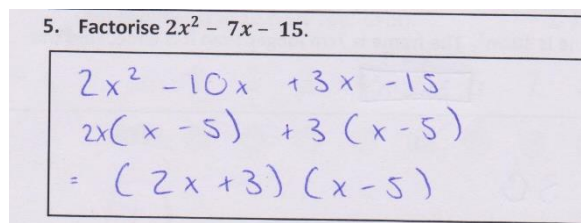 5. Factorise 2x² – 7x – 15.
2x² - 10x + 3x - 15
2x(x - 5) + 3(x - 5)
= (2x + 3)(x - 5)